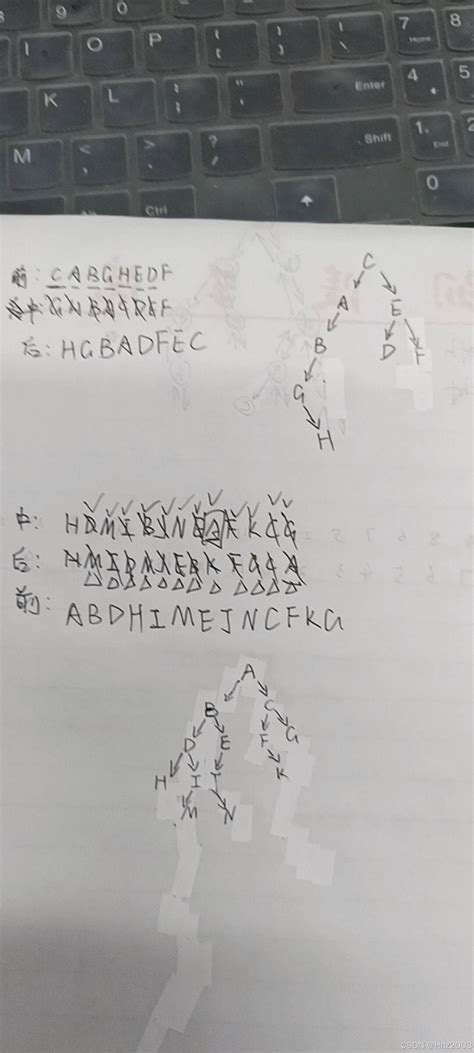 9 0
I O P { [ } ] | \ 7 Home 8
K L : ; " ' Enter 4 5
M < , > . ? / Shift 1 End 2
Ctrl 0
前: C A B G H E D F
后: H G B A D F E C
C
A E
B D F
G
H
中: H D M I B J N E A F K C G
后: H M I D N J E B K F G C A
前: A B D H I M E J N C F K G
A
B C
D E F G
H I J K
M N
CSDN @Hhz2002